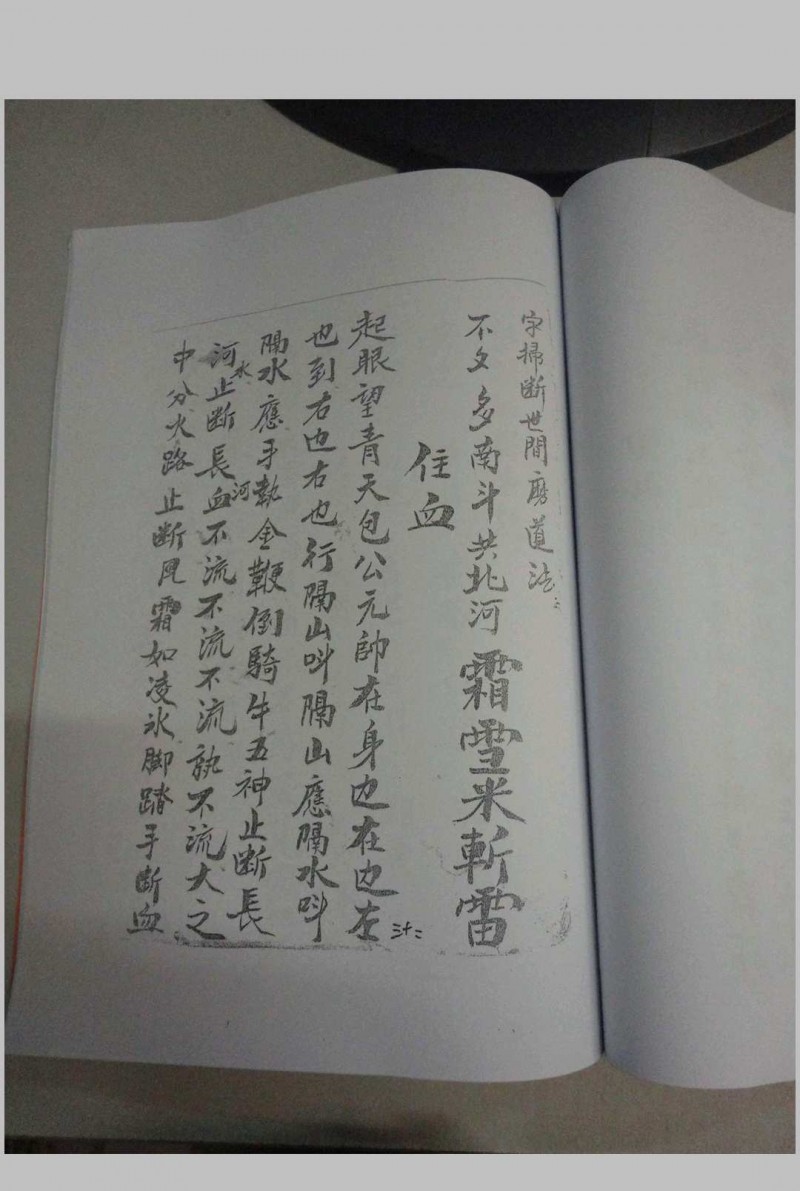 字掃斷世間磨道法
不夕多南斗共北河霜雪米斬雷
住血
起眼望青天包公元帥在身边在边左
也到右边右也行隔山呌隔山應隔水呌
隔水應手執金鞭倒騎牛五神止斷長
水
河止斷長血不流不流不流孰不流大之
河
中分火路止斷風霜如凌氷脚踏手斷血
三十二